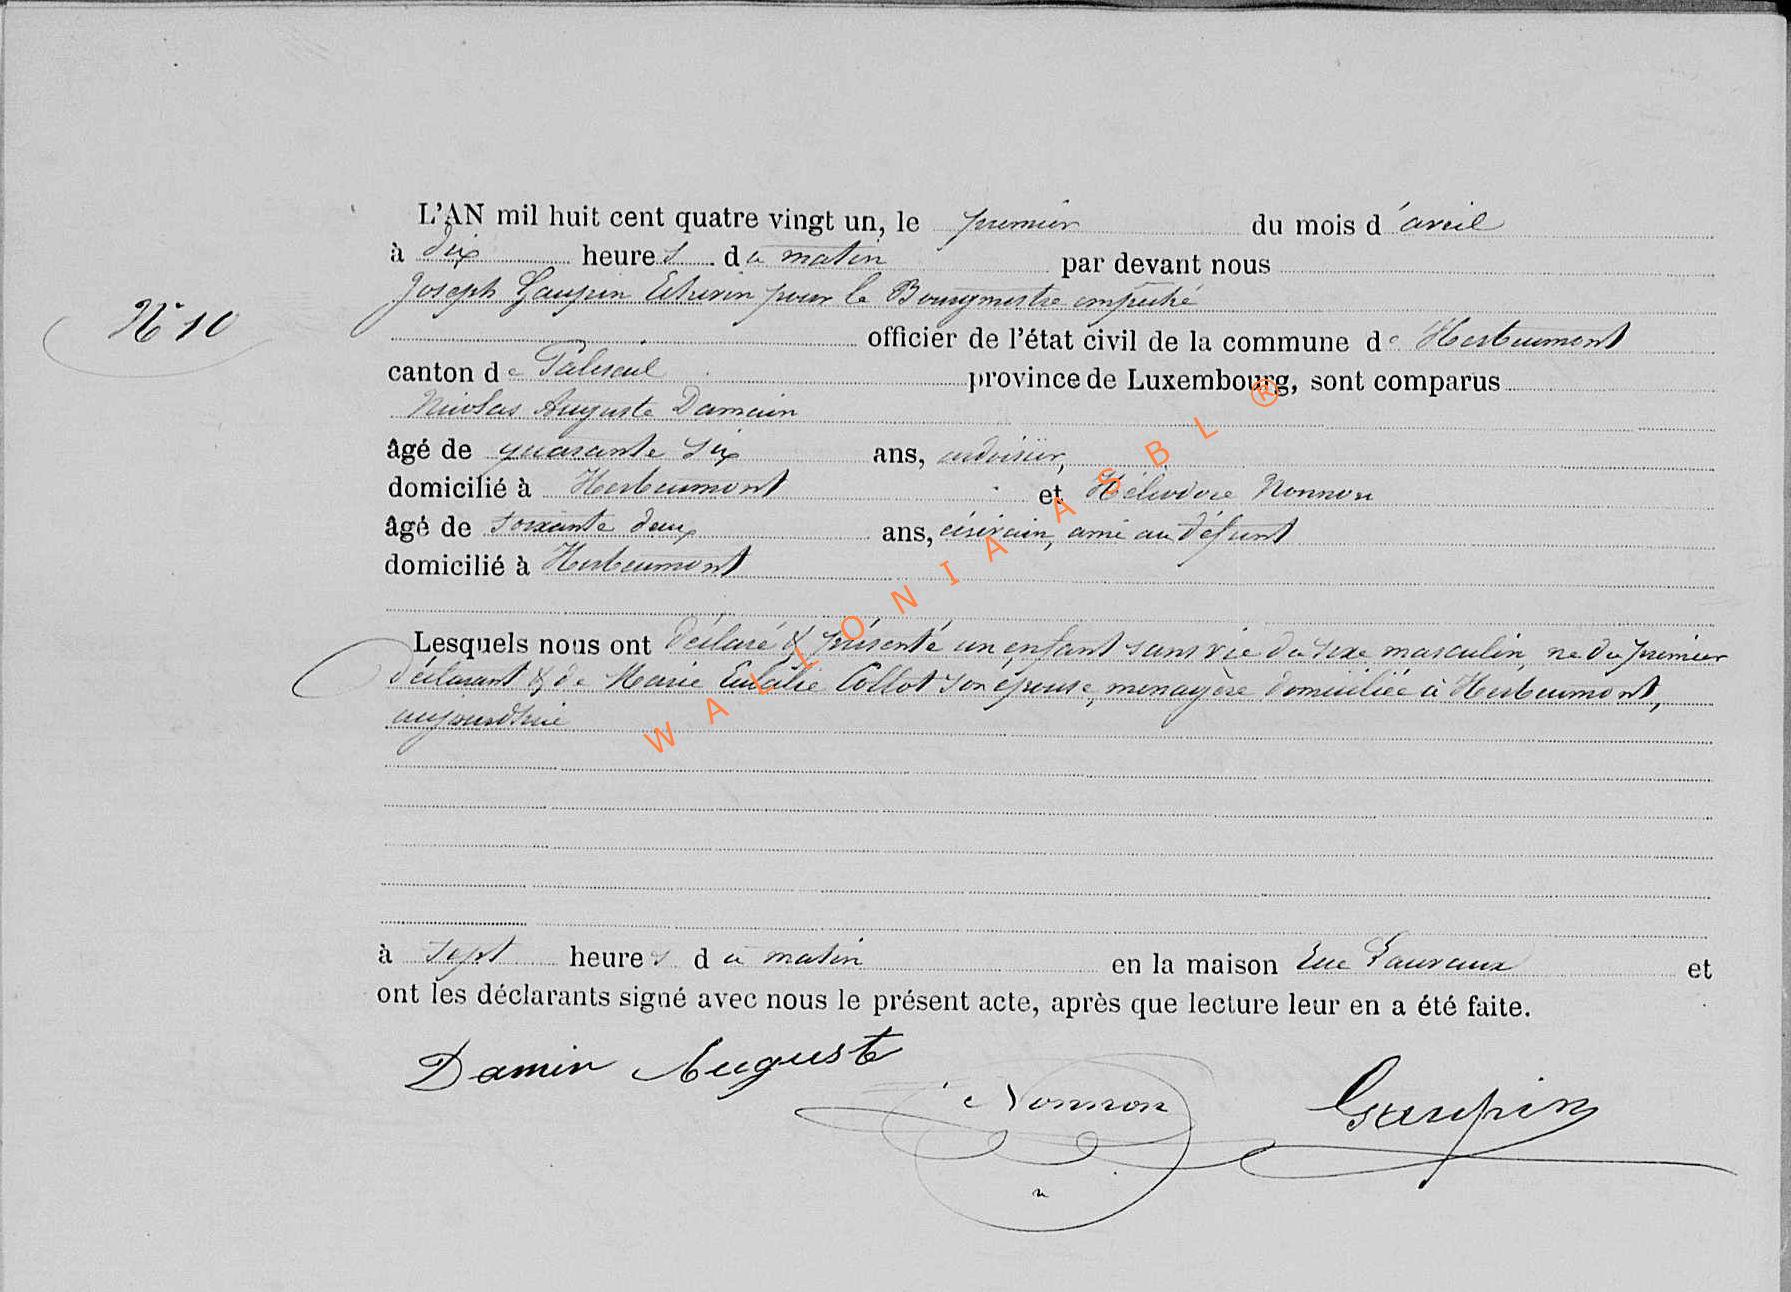 L'AN mil huit cent quatre vingt un, le premier du mois d'avril
à dix heures du matin par devant nous
Joseph Gaupin Echevin pour le Bourgmestre empêché
N° 10
officier de l'état civil de la commune de Herbeumont
canton de Paliseul province de Luxembourg, sont comparus
Nicolas Auguste Damain
âgé de quarante six ans, ardoisier,
domicilié à Herbeumont et Héliodore Nonnon
âgé de soixante deux ans, écrivain, ami au défunt
domicilié à Herbeumont
Lesquels nous ont déclaré & présenté un enfant sans vie du sexe masculin, né du premier
déclarant & de Marie Eulalie Collot son épouse, ménagère domiciliée à Herbeumont,
aujourdhui
à sept heures du matin en la maison rue et
ont les déclarants signé avec nous le présent acte, après que lecture leur en a été faite.
Damin Auguste
Nonnon
Gaupin
WALLONIA ASBL ®